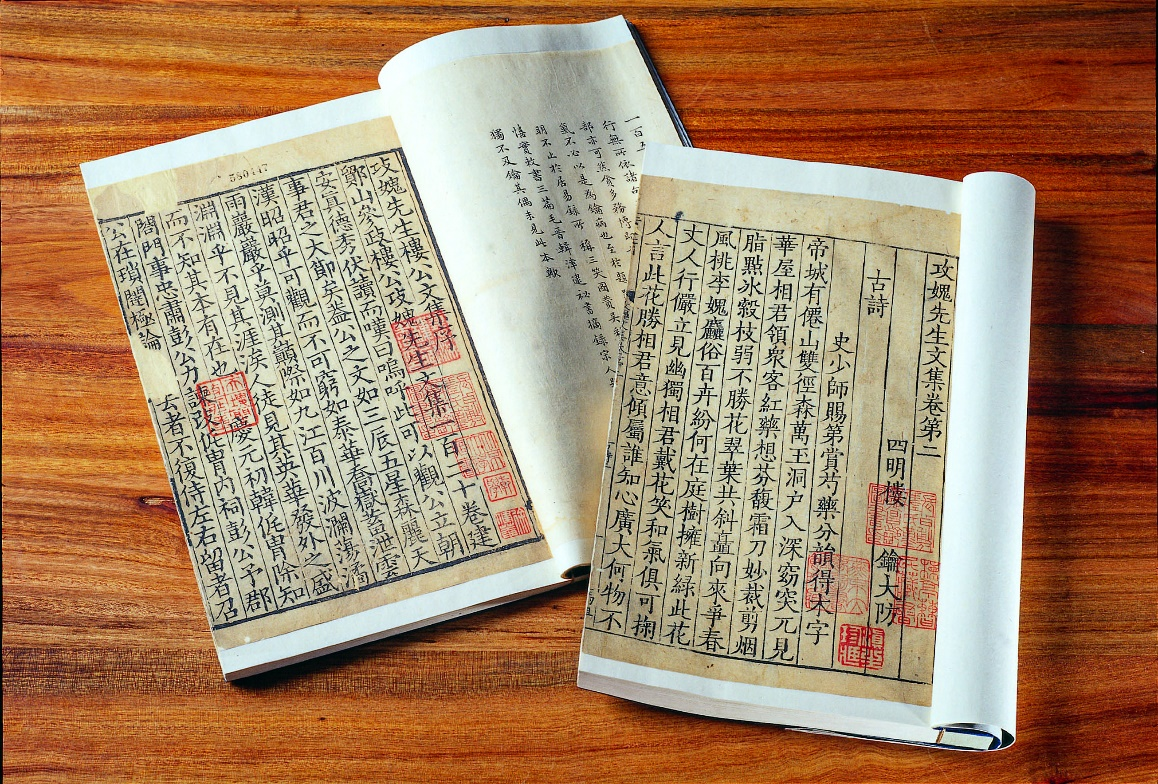 350447
一百五
行無所依諸
部亦可悉貪多務博
氣不必以是為鑰病也至於題
明不止於居易錄所稱三笑圖贊吳
情實故書三篇毛晉輯津逮祕書摘錄宋人題
獨不及鑰其偶未見此本歟
攻媿先生樓公文集序
鄮山參政樓公攻媿先生文集一百二十卷建
安真德秀伏讀而嘆曰嗚呼此可以觀公立朝
事君之大節矣蓋公之文如三辰五星森麗天
漢昭昭乎可觀而不可窮如泰華喬嶽蓄泄雲
雨巖巖乎莫測其巔際如九江百川波瀾蕩潏
淵淵乎不見其涯涘人徒見其英華發外之盛
而不知其本有在也慶元初韓侂冑除知
閤門事忠肅彭公力詆侂冑內祠彭公予郡
公在瑣闥極論去者不復侍左右留者召
攻媿先生文集卷第二
四明樓鑰大防
古詩
史少師賜第賞芍藥分韻得未字
帝城有僊山雙徑森萬玉洞户入深窈突兀見
華屋相君領衆客紅藥想芬馥霜刀妙裁剪烟
脂點冰縠枝弱不勝花翠葉共斜矗向來爭春
風桃李媿麤俗百卉紛何在庭樹擁新緑此花
丈人行儼立見幽獨相君戴花笑和氣俱可掬
人言此花勝相君意傾屬誰知心廣大何物不